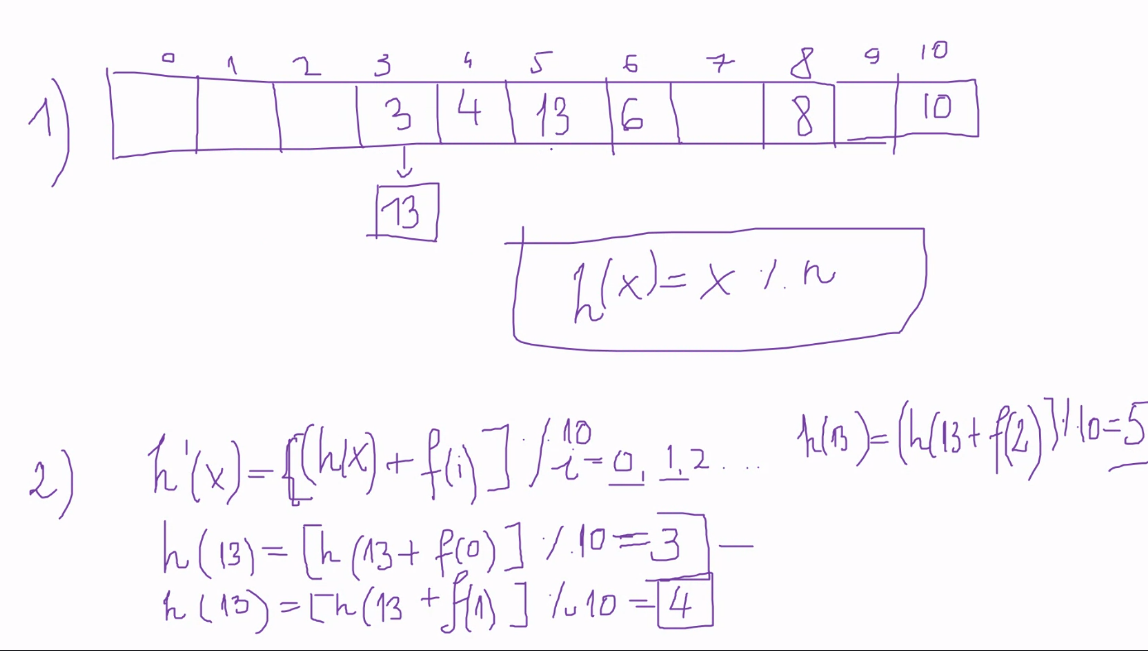 0 1 2 3 4 5 6 7 8 9 10
1) 3 4 13 6 8 10
13
h(x)= x % n
2) h'(x)={[(h(x)+f(i)] % 10 i=0, 1, 2 ....
h(13)=(h(13+f(2)]% 10=5
h(13)=[h(13+f(0)] % 10=3 —
h(13)=[h(13+f(1)] % 10=4